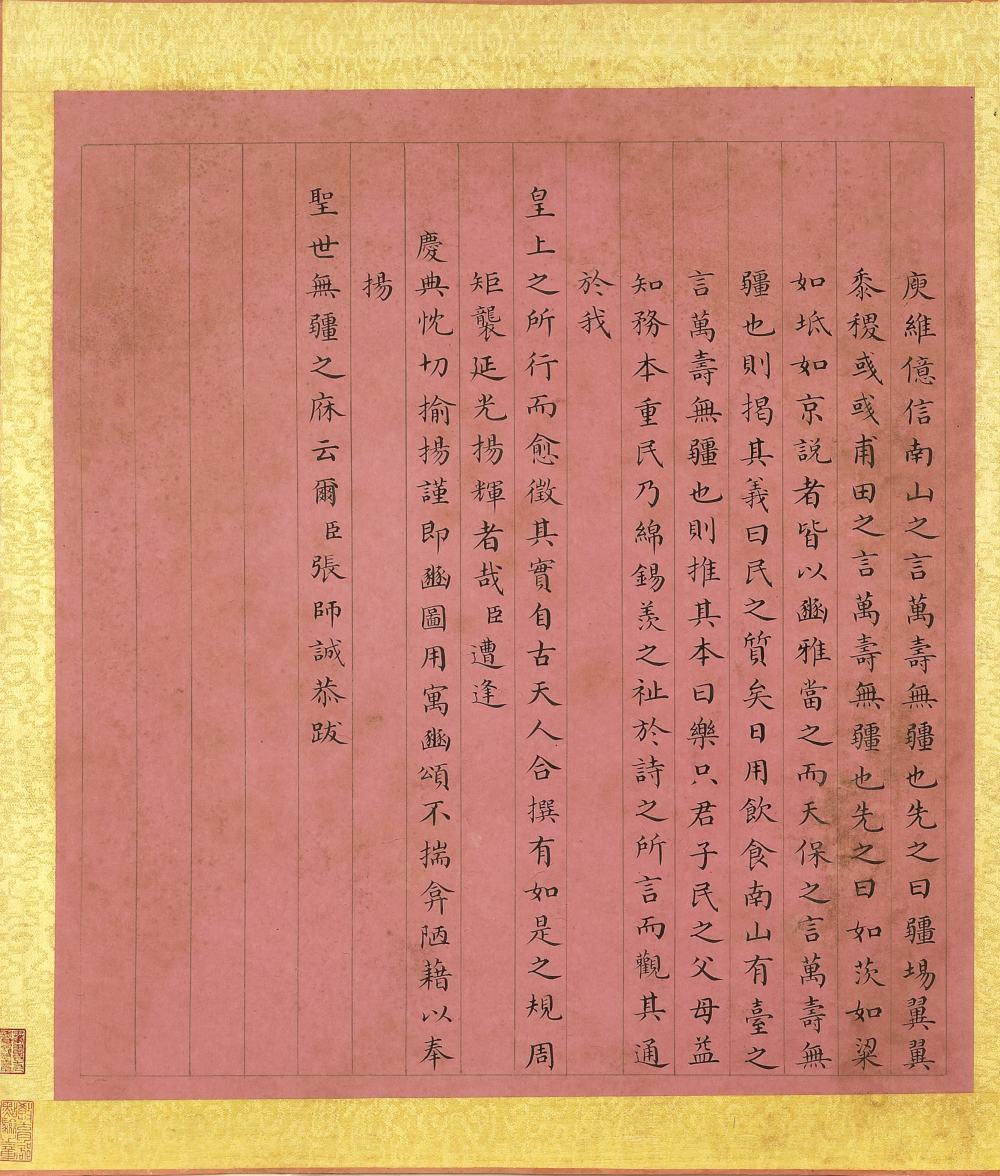 庾維億信南山之言萬壽無疆也先之曰疆埸翼翼
黍稷彧彧甫田之言萬壽無疆也先之曰如茨如梁
如坻如京說者皆以豳雅當之而天保之言萬壽無
疆也則揭其義曰民之質矣日用飲食南山有臺之
言萬壽無疆也則推其本曰樂只君子民之父母益
知務本重民乃綿錫羨之祉於詩之所言而觀其通
於我
皇上之所行而愈徵其實自古天人合撰有如是之規周
矩襲延光揚輝者哉臣遭逢
慶典忱切揄揚謹即豳圖用寓豳頌不揣弇陋藉以奉
揚
聖世無疆之庥云爾臣張師誠恭跋